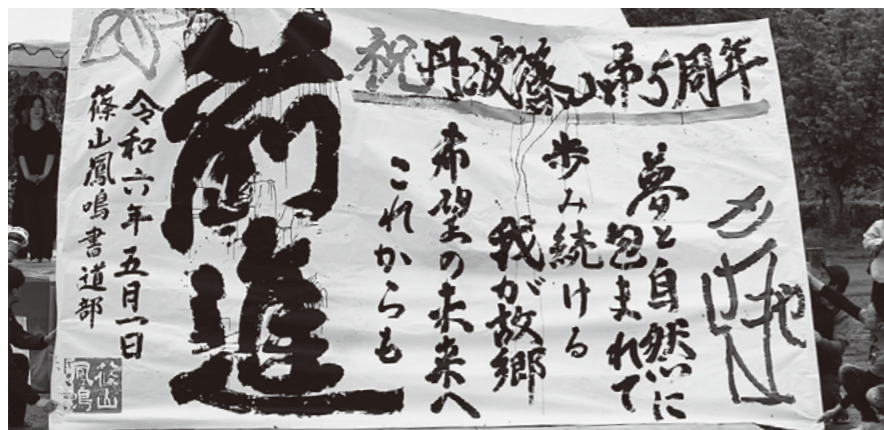 祝丹波篠山市5周年
夢と自然に
包まれて
歩み続ける
我が故郷
希望の未来へ
これからも
前進
令和六年五月一日
篠山鳳鳴書道部
篠山
鳳鳴